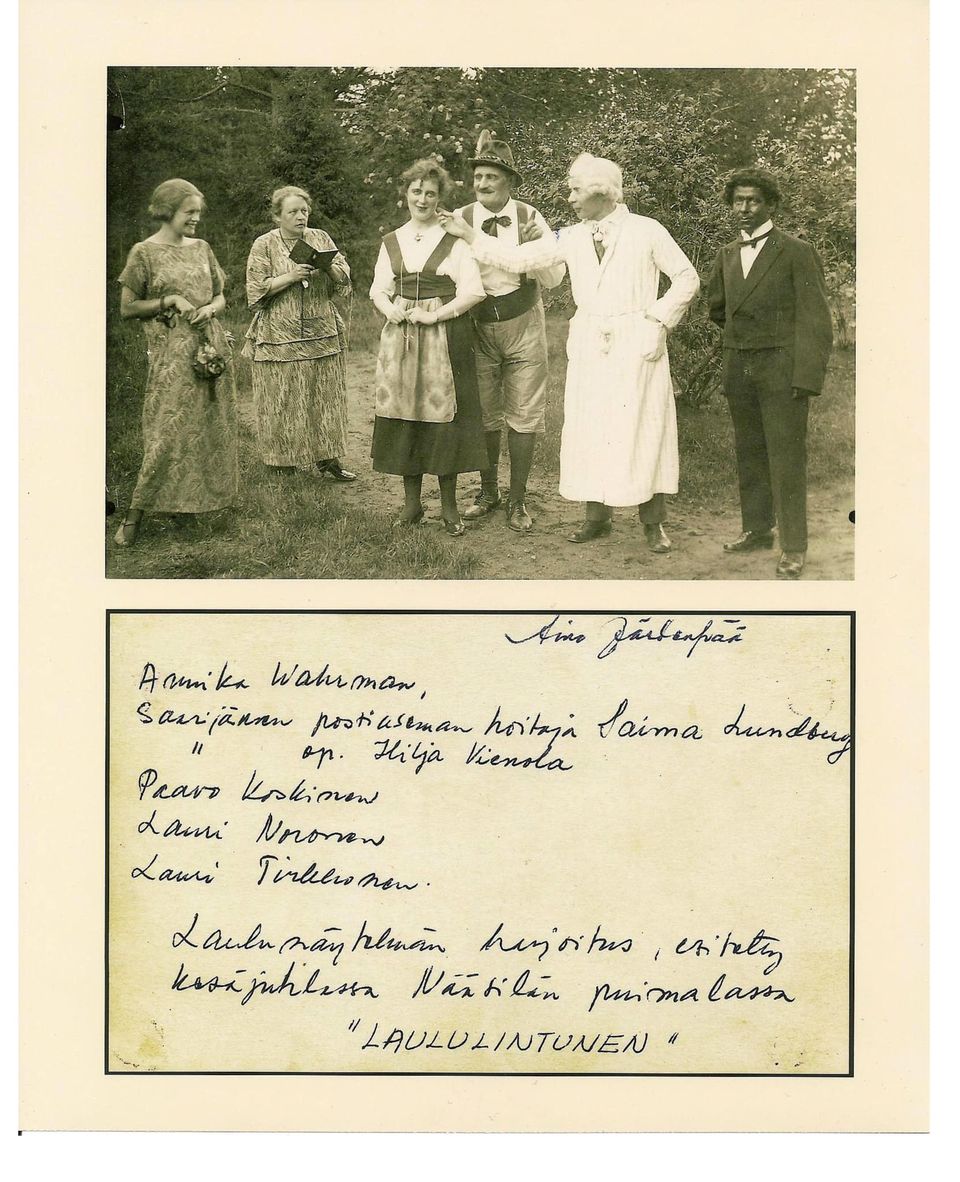 Aino Järvenpää
Annika Wahrman,
Saarijärven postiaseman hoitaja Saima Lundberg
" ap. Hilja Vienola
Paavo Koskinen
Lauri Noronen
Lauri Tirkkonen.
Laulunäytelmän harjoitus, esitetty
kesäjuhlassa Nääsilän puimalassa
"LAULULINTUNEN"